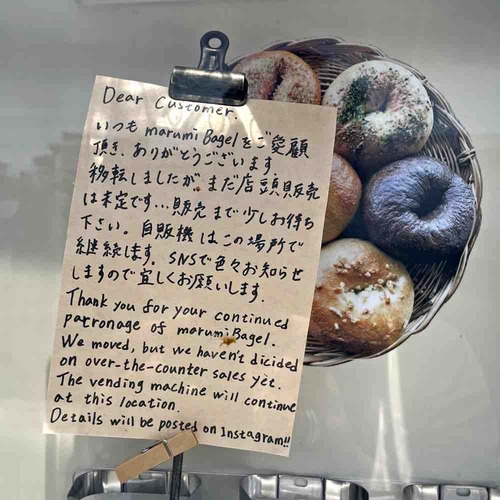 Dear Customer.
いつも marumi Bagelをご愛顧
頂き、ありがとうございます
移転しましたが、まだ店頭販売
は未定です…販売まで少しお待ち
下さい。自販機はこの場所で
継続します。SNSで色々お知らせ
しますので宜しくお願いします。
Thank you for your continued
patronage of marumi Bagel.
We moved, but we haven't dicided
on over-the-counter sales yet.
The vending machine will continue
at this location.
Details will be posted on Instagram!!